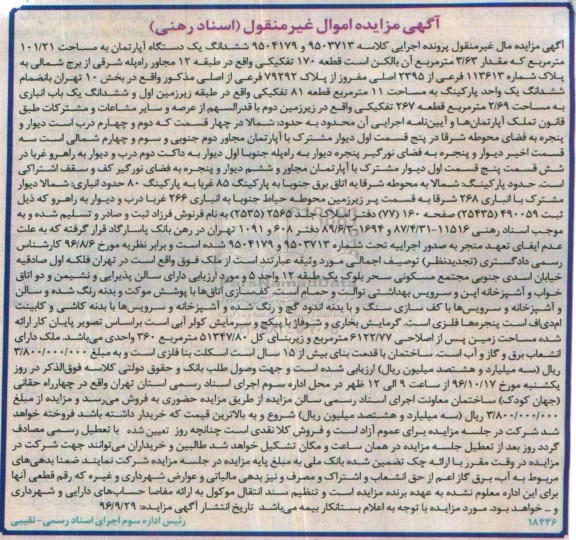 آگهی مزایده اموال غیرمنقول (اسناد رهنی)
آگهی مزایده مال غیرمنقول پرونده اجرایی کلاسه ۹۵۰۳۷۱۳ و ۹۵۰۴۱۷۹ ششدانگ یک دستگاه آپارتمان به مساحت ۱۰۱/۲۱
مترمربع که مقدار ۳/۶۳ مترمربع آن بالکن است قطعه ۱۷۰ تفکیکی واقع در طبقه ۱۲ مجاور راه‌پله شرقی از برج شمالی به
پلاک شماره ۱۱۳۶۱۳ فرعی از ۲۳۹۵ اصلی مفروز از پلاک ۷۹۲۹۲ فرعی از اصلی مذکور واقع در بخش ۱۰ تهران بانضمام
ششدانگ یک واحد پارکینگ به مساحت ۱۱ مترمربع قطعه ۸۱ تفکیکی واقع در طبقه زیرزمین اول و ششدانگ یک باب انباری
به مساحت ۲/۶۹ مترمربع قطعه ۲۶۷ تفکیکی واقع در زیرزمین دوم با قدرالسهم از عرصه و سایر مشاعات و مشترکات طبق
قانون تملک آپارتمان‌ها و آیین‌نامه اجرایی آن محدود به حدود: شمالا در چهار قسمت که دوم و چهارم درب است دیوار و
پنجره به فضای محوطه شرقا در پنج قسمت اول دیوار مشترک با آپارتمان مجاور دوم جنوبی و سوم و چهارم شمالی است سه
قسمت اخیر دیوار و پنجره به فضای نورگیر پنجره دیوار به راه‌پله جنوبا اول دیوار به داکت دوم درب و دیوار به راهرو غربا در
شش قسمت پنج قسمت اول دیوار مشترک با آپارتمان مجاور و ششم دیوار و پنجره به فضای نورگیر کف و سقف اشتراکی
است. حدود پارکینگ: شمالا به محوطه شرقا به اتاق برق جنوبا به پارکینگ ۸۵ غربا به پارکینگ ۸۰ حدود انباری: شمالا دیوار
مشترک با انباری ۲۶۸ شرقا به قسمت پر زیرزمین محوطه حیاط جنوبا به انباری ۲۶۶ غربا درب و دیوار به راهرو که ذیل
ثبت ۴۹۰۰۵۹ (۲۵۴۳۵) صفحه ۱۶۰ (۷۷) دفتر املاک جلد ۲۵۶۵ (۲۵۳۵) به نام فرنوش فرزاد ثبت و صادر و تسلیم شده و به
موجب اسناد رهنی ۱۱۵۱۶-۸۷/۴/۳۱ و ۱۶۹۴-۸۹/۶/۳ دفتر ۶۰۸ و ۱۰۹۱ تهران در رهن بانک پاسارگاد قرار گرفته که به علت
عدم ایفای تعهد منجر به صدور اجراییه تحت شماره ۹۵۰۳۷۱۳ و ۹۵۰۴۱۷۹ شده است و برابر نظریه مورخ ۹۶/۸/۶ کارشناس
رسمی دادگستری (تجدیدنظر) توصیف اجمالی مورد وثیقه عبارتند است از ملک فوق واقع است در تهران فلکه اول صادقیه
خیابان اسدی جنوبی مجتمع مسکونی سحر بلوک یک طبقه ۱۲ واحد ۵ و مورد ارزیابی دارای سالن پذیرایی و نشیمن و دو اتاق
خواب و آشپزخانه اپن و سرویس بهداشتی توالت و حمام است. کف‌سازی اتاق‌ها با پوشش موکت و بدنه رنگ شده و سالن
و آشپزخانه و سرویس‌ها با کف سازی سنگ و با بدنه اندود گچ و رنگ شده و آشپزخانه و سرویس‌ها با بدنه کاشی و کابینت
ام‌دی‌اف است پنجره‌ها فلزی است. گرمایش بخاری و شوفاژ با پکیج و سرمایش کولر آبی است براساس تصویر پایان کار ارائه
شده مساحت زمین پس از اصلاحی ۶۱۲۲/۷۷ مترمربع و زیربنای کل ۵۱۳۴۷/۸۰ مترمربع ۳۶۰ واحدی می‌باشد. ملک دارای
انشعاب برق و گاز و آب است. ساختمان با قدمت بنای بیش از ۱۵ سال است اسکلت بنا فلزی است و به مبلغ ۳/۸۰۰/۰۰۰/۰۰۰
ریال (سه میلیارد و هشتصد میلیون ریال) ارزیابی شده است و جهت وصول طلب بانک و حقوق دولتی کلاسه فوق‌الذکر در روز
یکشنبه مورخ ۹۶/۱۰/۱۷ از ساعت ۹ الی ۱۲ ظهر در محل اداره سوم اجرای اسناد رسمی استان تهران واقع در چهارراه حقانی
(جهان کودک) ساختمان معاونت اجرای اسناد رسمی سالن مزایده از طریق مزایده حضوری به فروش می‌رسد و مزایده از مبلغ
۳/۸۰۰/۰۰۰/۰۰۰ ریال (سه میلیارد و هشتصد میلیون ریال) شروع و به بالاترین قیمت که خریدار داشته باشد فروخته خواهد
شد شرکت در جلسه مزایده برای عموم آزاد است و فروش کلا نقدی است چنانچه روز تعیین شده با تعطیل رسمی مصادف
گردد روز بعد از تعطیل جلسه مزایده در همان ساعت و مکان تشکیل خواهد شد طالبین و خریداران می‌توانند جهت شرکت در
مزایده در وقت مقرر با ارائه چک تضمین شده بانک ملی به مبلغ پایه مزایده در جلسه مزایده شرکت نمایند ضمنا بدهی‌های
مربوط به آب، برق گاز اعم از حق انشعاب و اشتراک و مصرف و نیز بدهی مالیاتی و عوارض شهرداری و غیره که رقم قطعی آنها
برای این اداره معلوم نشده به عهده برنده مزایده است و تنظیم سند انتقال موکول به ارائه مفاصا حساب‌های دارایی و شهرداری
و .. خواهد بود. مورد مزایده با توجه به اعلام بستانکار بیمه می‌باشد تاریخ انتشار آگهی مزایده: ۹۶/۹/۲۹
۱۸۴۳۶ رئیس اداره سوم اجرای اسناد رسمی- نقیبی